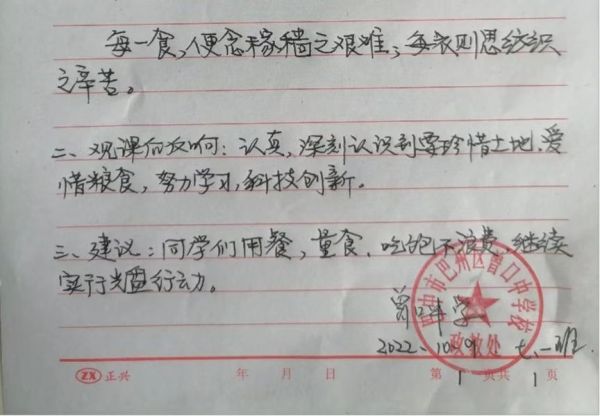 每一食,便念稼穑之艰难;每衣则思纺织
之辛苦。
二、观课后反响:认真,深刻认识到要珍惜土地,爱
惜粮食,努力学习,科技创新。
三、建议:同学们用餐,量食、吃饱不浪费,继续
实行光盘行动。
巴中市巴州区曾口中学校
政教处
曾口中学
2022-10-9 七.一班
ZX 正兴 年 月 日 第1页共1页